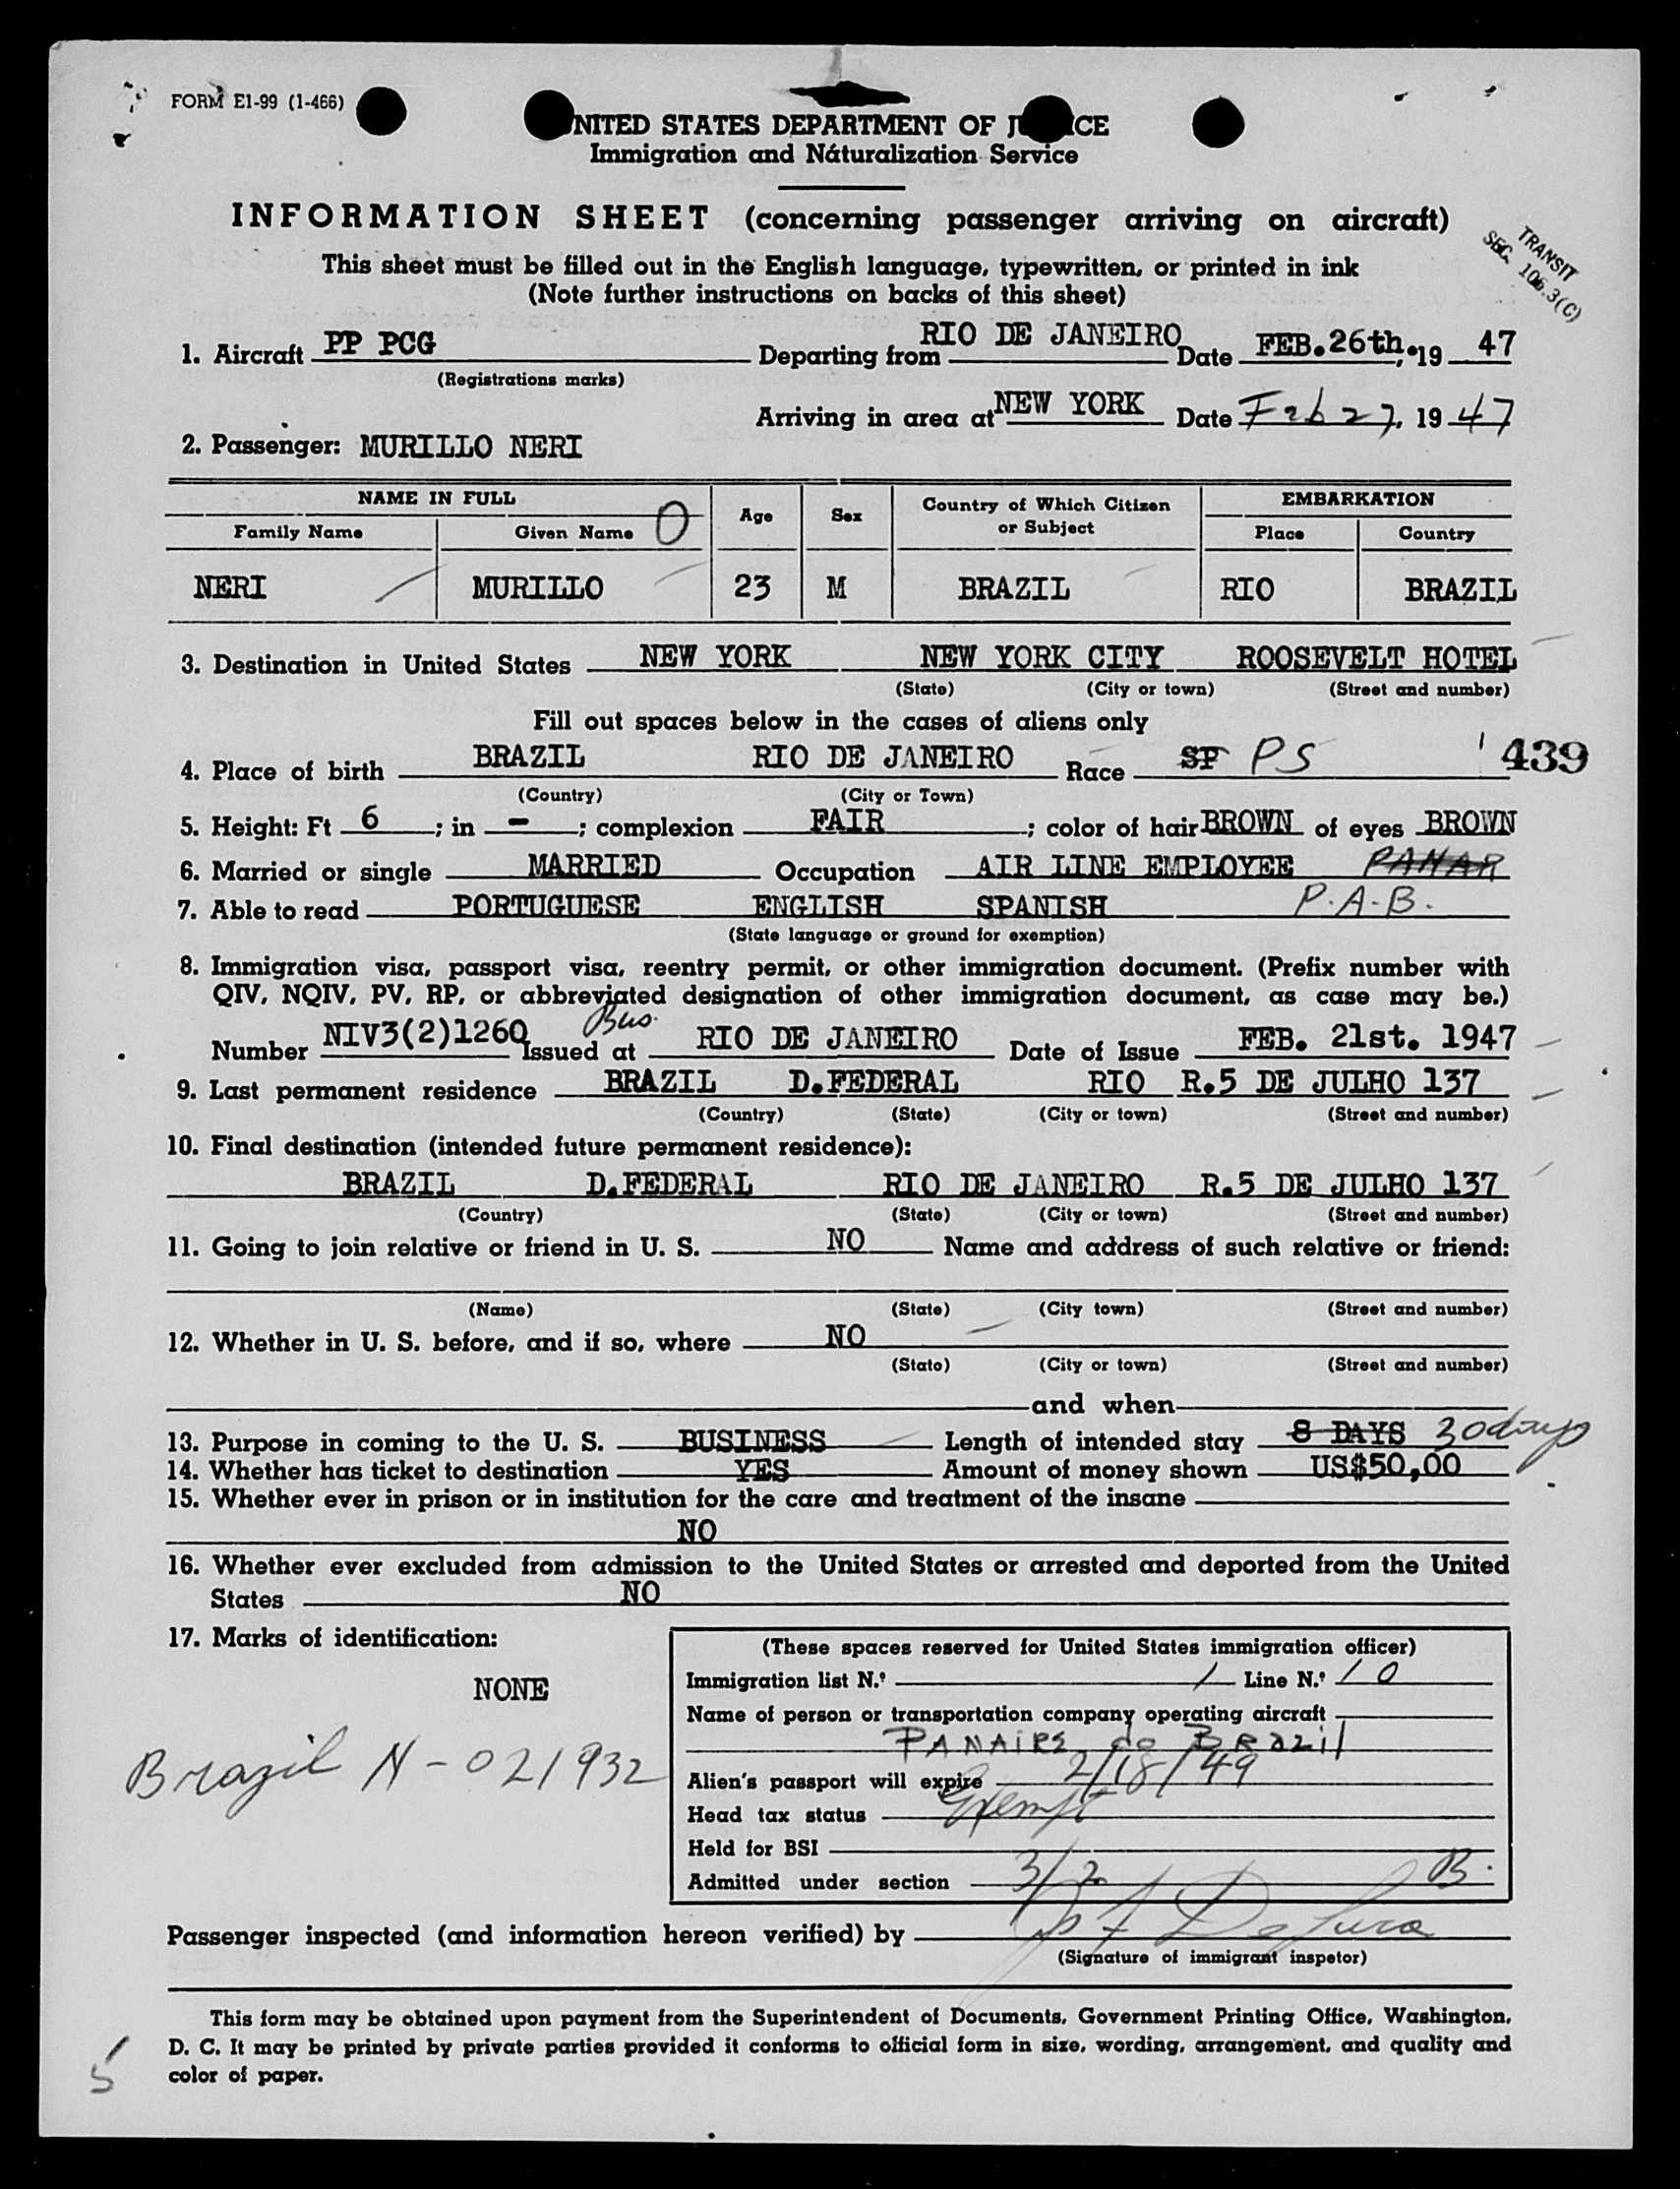 FORM E1-99 (1-466)
NITED STATES DEPARTMENT OF J CE
Immigration and Naturalization Service
INFORMATION SHEET (concerning passenger arriving on aircraft)
TRANSIT
SEC. 106.3(C)
This sheet must be filled out in the English language, typewritten, or printed in ink
(Note further instructions on backs of this sheet)
1. Aircraft PP PCG Departing from RIO DE JANEIRO Date FEB.26th. 19 47
(Registrations marks)
Arriving in area at NEW YORK Date Feb 27, 19 47
2. Passenger: MURILLO NERI
NAME IN FULL O Age Sex Country of Which Citizen or Subject EMBARKATION
Family Name Given Name Place Country
NERI MURILLO 23 M BRAZIL RIO BRAZIL
3. Destination in United States NEW YORK NEW YORK CITY ROOSEVELT HOTEL
(State) (City or town) (Street and number)
Fill out spaces below in the cases of aliens only
4. Place of birth BRAZIL RIO DE JANEIRO Race SP PS 439
(Country) (City or Town)
5. Height: Ft 6 ; in - ; complexion FAIR ; color of hair BROWN of eyes BROWN
6. Married or single MARRIED Occupation AIR LINE EMPLOYEE PANAR
7. Able to read PORTUGUESE ENGLISH SPANISH P.A.B.
(State language or ground for exemption)
8. Immigration visa, passport visa, reentry permit, or other immigration document. (Prefix number with
QIV, NQIV, PV, RP, or abbreviated designation of other immigration document, as case may be.)
Bus.
Number NIV3(2)1260 Issued at RIO DE JANEIRO Date of Issue FEB. 21st. 1947
9. Last permanent residence BRAZIL D.FEDERAL RIO R.5 DE JULHO 137
(Country) (State) (City or town) (Street and number)
10. Final destination (intended future permanent residence):
BRAZIL D.FEDERAL RIO DE JANEIRO R.5 DE JULHO 137
(Country) (State) (City or town) (Street and number)
11. Going to join relative or friend in U. S. NO Name and address of such relative or friend:
(Name) (State) (City town) (Street and number)
12. Whether in U. S. before, and if so, where NO
(State) (City or town) (Street and number)
and when
13. Purpose in coming to the U. S. BUSINESS Length of intended stay 8 DAYS 30 days
14. Whether has ticket to destination YES Amount of money shown US$50,00
15. Whether ever in prison or in institution for the care and treatment of the insane
NO
16. Whether ever excluded from admission to the United States or arrested and deported from the United
States NO
17. Marks of identification:
NONE
Brazil N-021932
(These spaces reserved for United States immigration officer)
Immigration list N.º 1 Line N.º 10
Name of person or transportation company operating aircraft
PANAIRE do BRAZIL
Alien's passport will expire 2/18/49
Head tax status Exempt
Held for BSI
Admitted under section 3/2 B.
Passenger inspected (and information hereon verified) by
(Signature of immigrant inspetor)
This form may be obtained upon payment from the Superintendent of Documents, Government Printing Office, Washington,
D. C. It may be printed by private parties provided it conforms to official form in size, wording, arrangement, and quality and
color of paper.
5